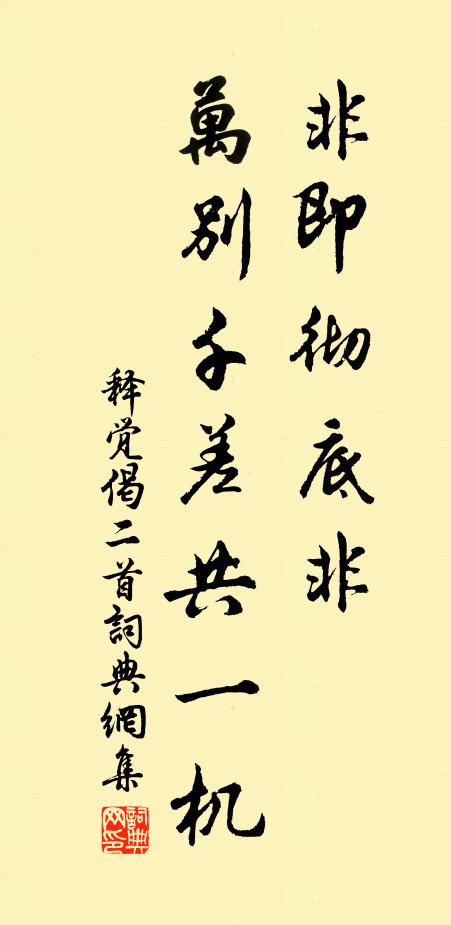 非即彻底非
萬别千差共一机
释覺偈二首詞典網集
詞典网印